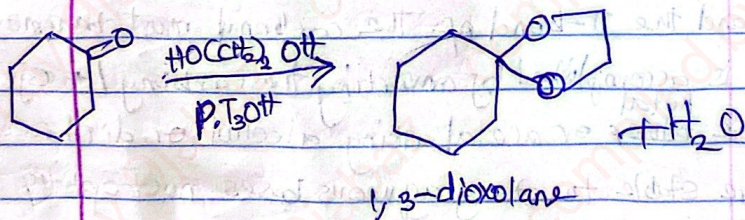 O
HO(CH₂)₂ OH
P.T₃OH
O
O
+ H₂O
1, 3-dioxolane